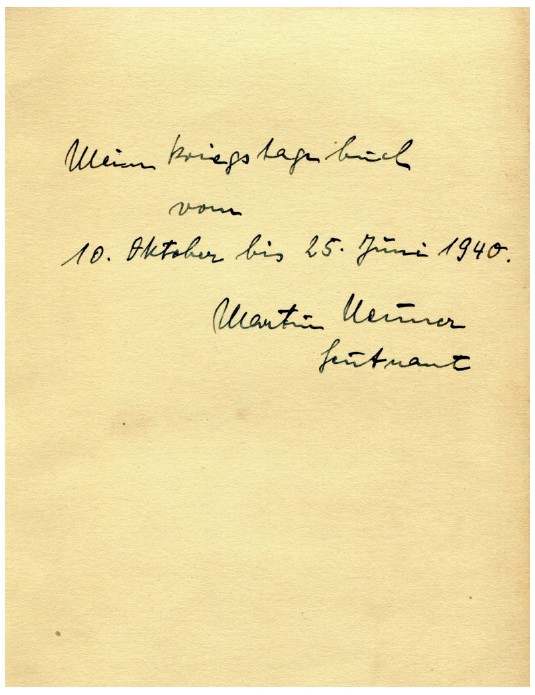 Mein Kriegstagebuch
vom
10. Oktober bis 25. Juni 1940.
Martin
Leutnant